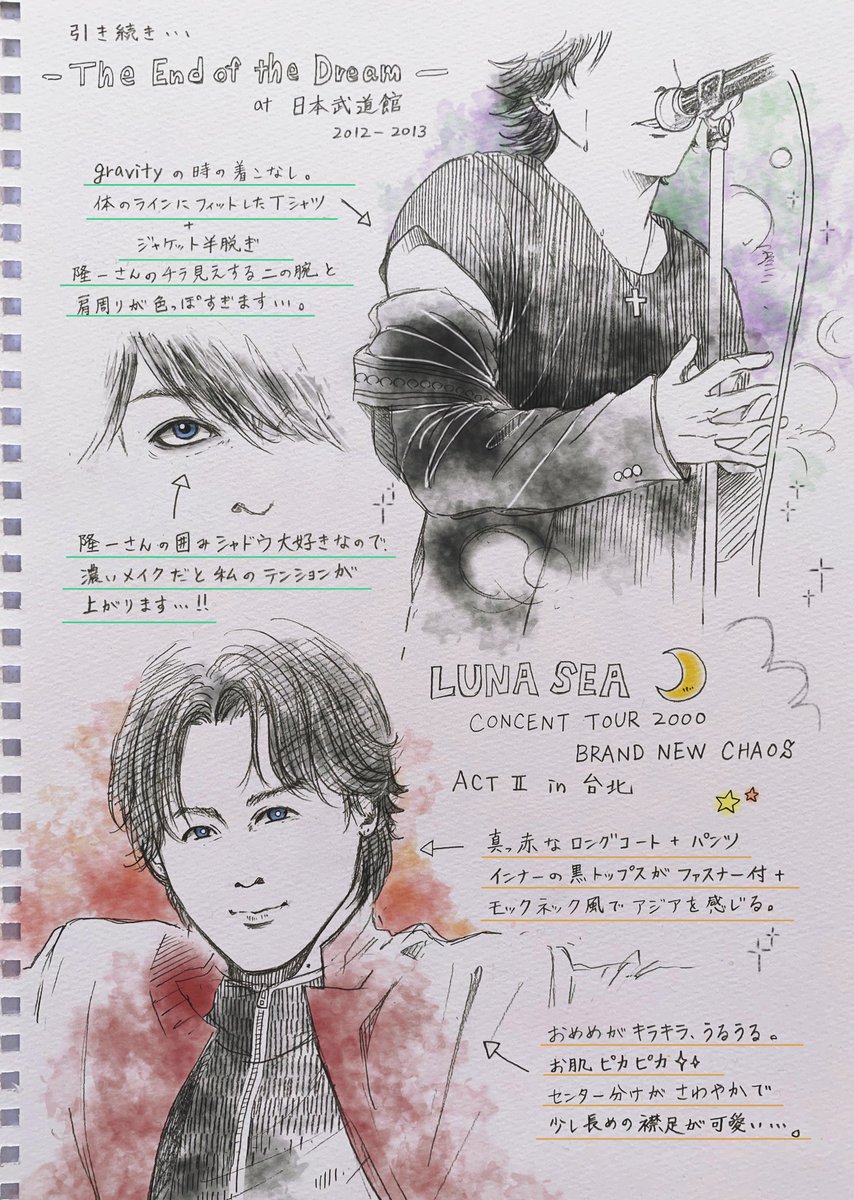 引き続き・・・
- The End of the Dream -
at 日本武道館
2012-2013
gravityの時の着こなし。
体のラインにフィットしたTシャツ
+
ジャケット半脱ぎ
隆一さんのチラ見えする二の腕と
肩周りが色っぽすぎます・・・。
隆一さんの囲みシャドウ大好きなので、
濃いメイクだと私のテンションが
上がります・・・!!
LUNA SEA
CONCENT TOUR 2000
BRAND NEW CHAOS
ACT II in 台北
真っ赤なロングコート + パンツ
インナーの黒トップスがファスナー付+
モックネック風でアジアを感じる。
おめめがキラキラ、うるうる。
お肌ピカピカ
センター分けがさわやかで
少し長めの襟足が可愛い・・・。